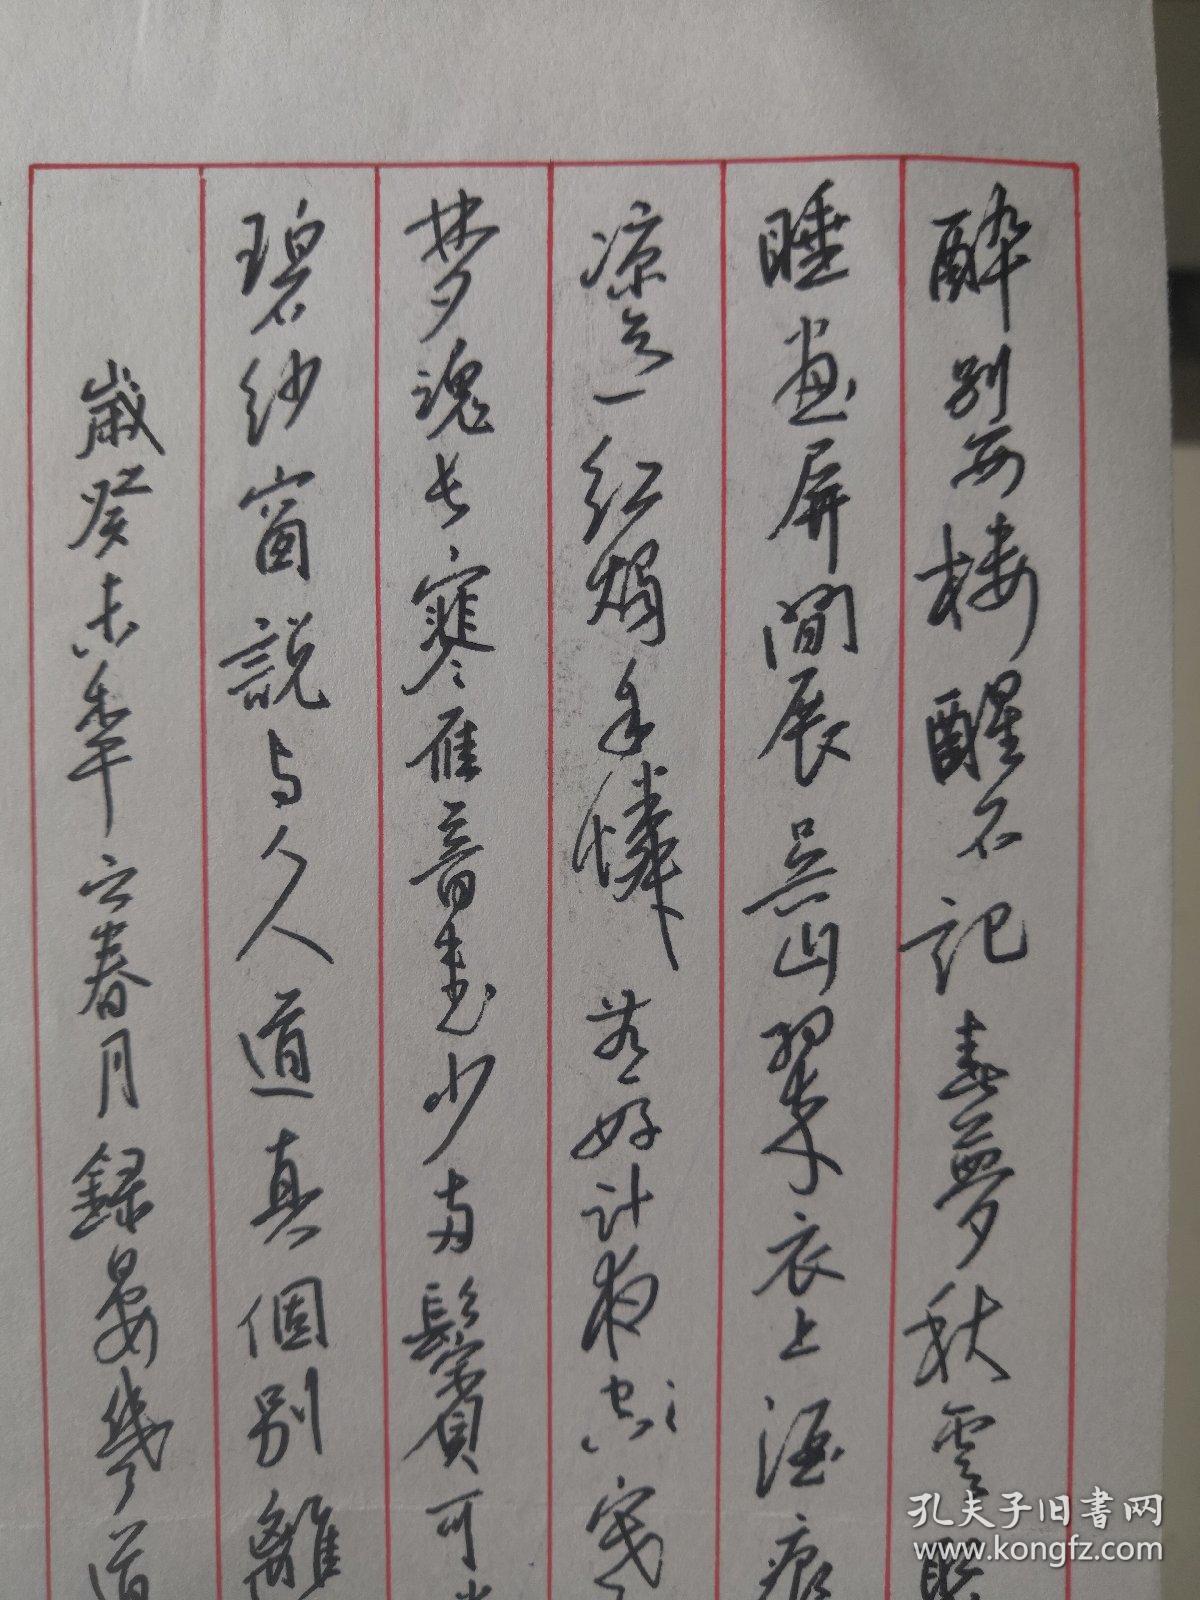 醉别西楼醒不记春夢秋雲聚
睡画屏間展吴山翠衣上酒痕
凉意红燭自憐无好计夜寒空
梦魂长寒雁音書少两鬢可
碧纱窗説与人人道真個别離
歲癸未年之春月録晏幾道
孔夫子旧书网
www.kongfz.com